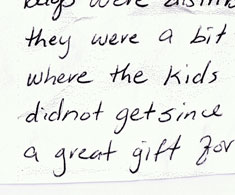 were
they were a bit
where the kids
didnot get since
a great gift for